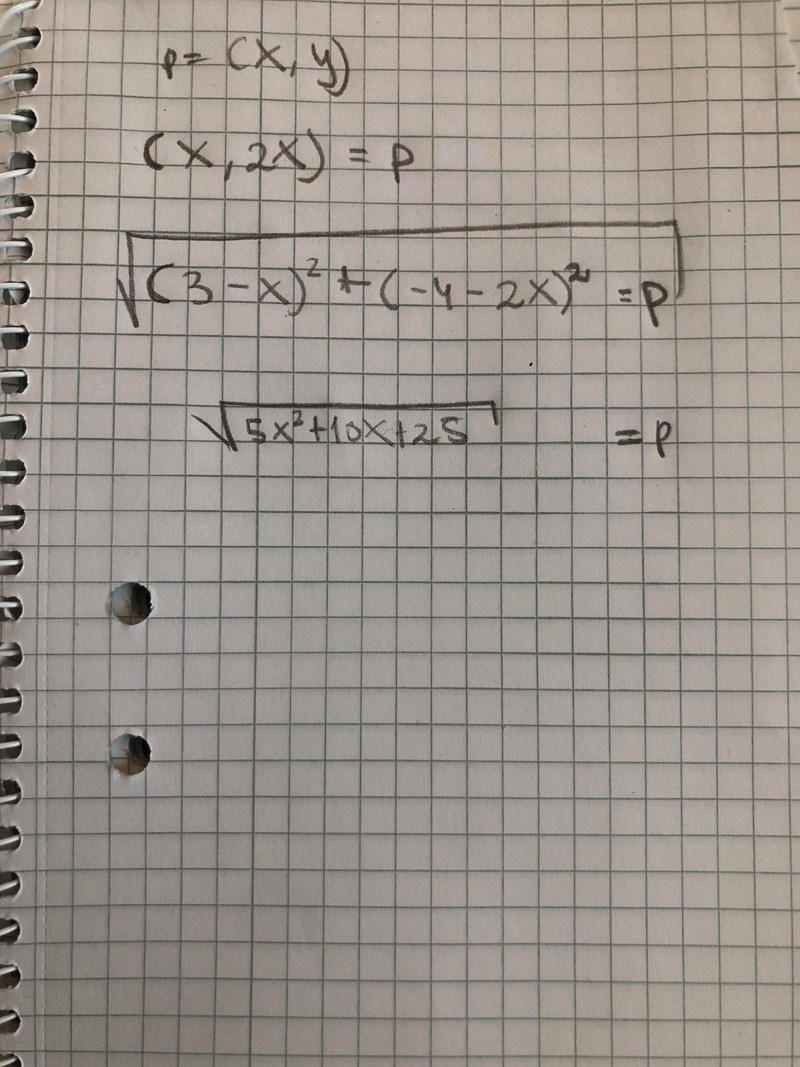 p = (x, y)
(x, 2x) = p
√(3-x)² + (-4-2x)² = p
√5x²+10x+25 = p